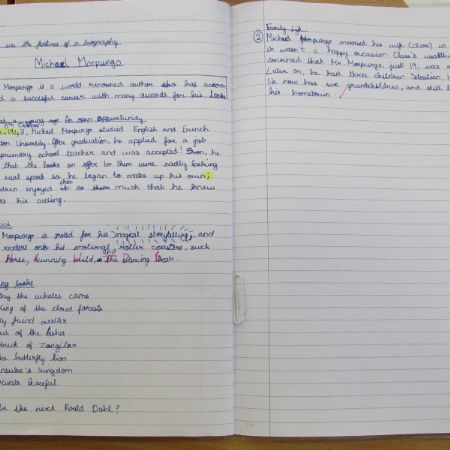 use the features of a biography
Michael Morpurgo
Morpurgo is a world renowned author who has
a succesful career with many awards for his books
at a young age (an open opportunity.
1943, Micheal Morpurgo studied English and French
University. After graduation, he applied for a job
primary school teacher and was accepted. Soon, he
that the books on offer to them were sadly lacking
spark so he began to make up his own;
enjoyed it so much that he knew
his calling.
Morpurgo is noted for his magical storytelling and
onto his emotional roller coasters, such
Horse, Running Wild, and the Dancing Bear.
books
the whales came
king of the cloud forests
friend walter
out of the Ashes
of Zanzibar
the butterfly lion
kingdom
Private Peaceful
be the next Roald Dahl?
Family life
② Michael Morpurgo married his wife (Clare) in
it wasn't a happy occasion Clare's
concerned that Mr Morpurgo, just 19, was
Later on, he had three children Sebastian,
He now has six grandchildren, and still
his hometown